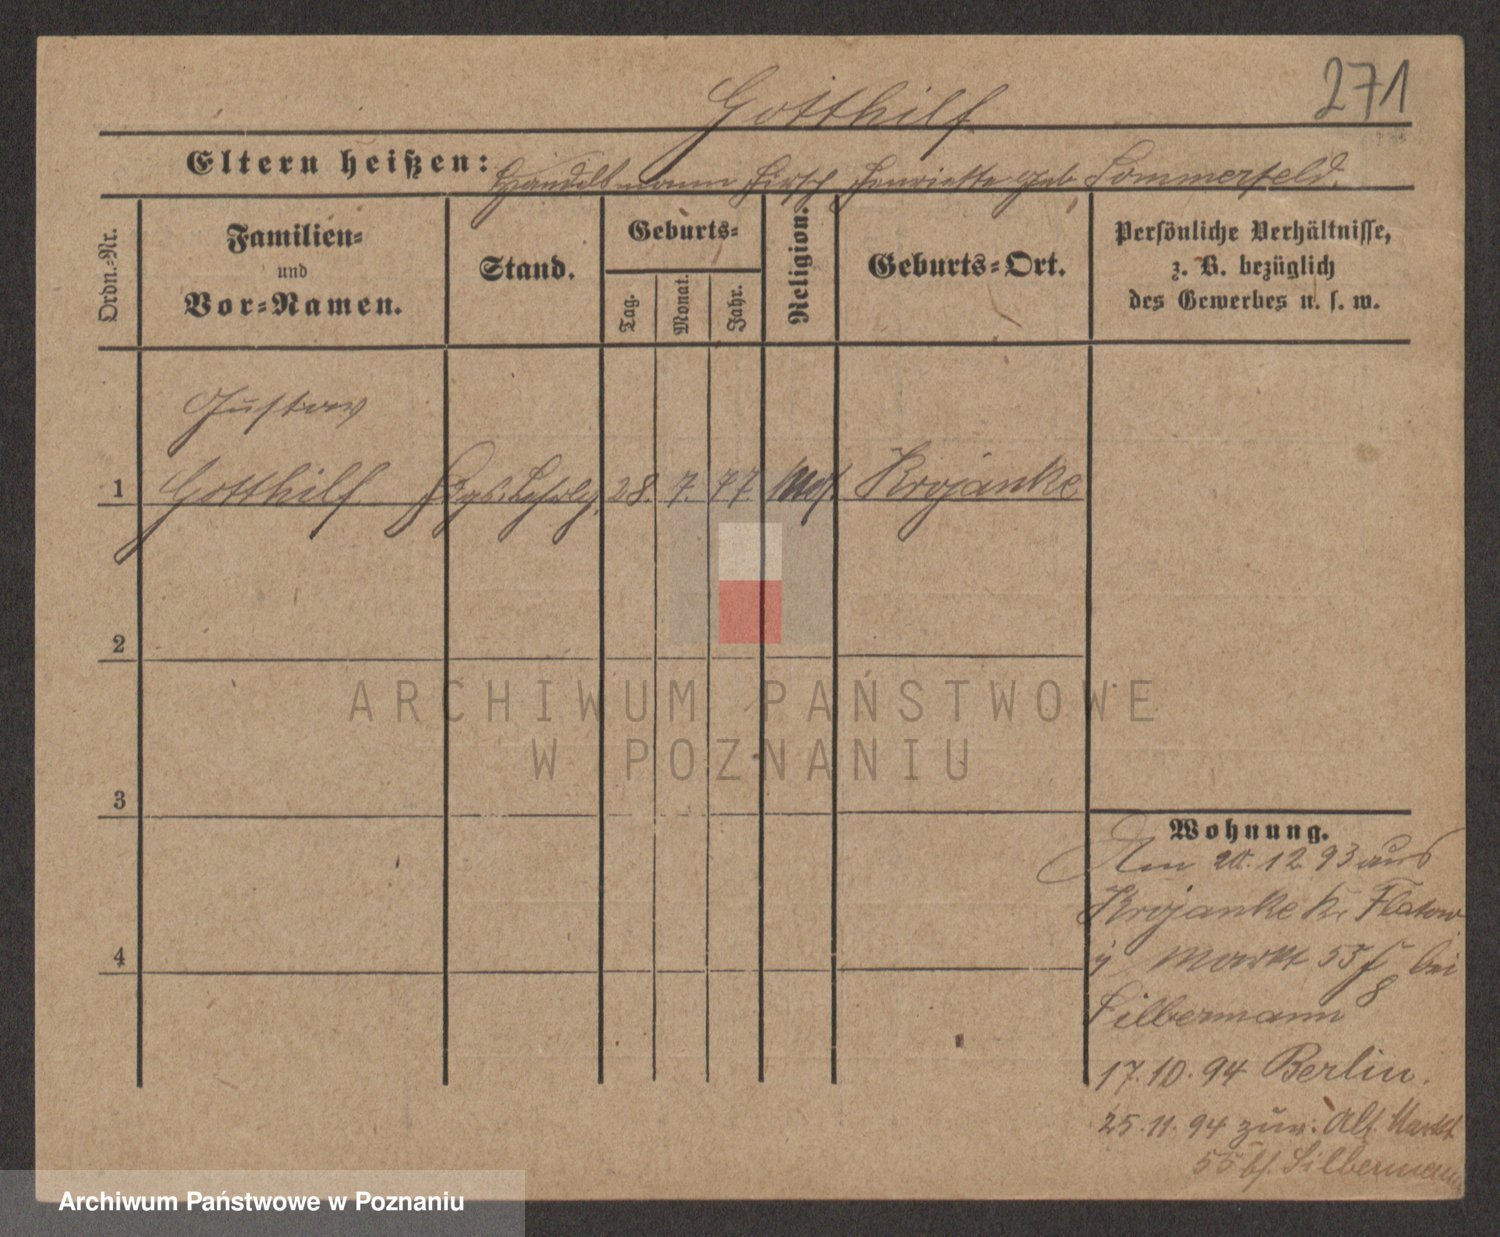 271
Gotthilf
Eltern heißen: Handelsmann Hirsch Henriette geb. Sommerfeld.
Ordn.-Nr.
Familien-
und
Vor-Namen.
Stand.
Geburts-
Tag.
Monat.
Jahr.
Religion.
Geburts-Ort.
Persönliche Verhältnisse,
z. B. bezüglich
des Gewerbes u. s. w.
Gustav
1 Gotthilf 28. 7. 77 Krojanke
2
3
4
Wohnung.
Am 12 93 aus
Krojanke Kr Flatow
Markt 55 bei
Silbermann
17.10.94 Berlin.
25.11.94 zur. Alt. Markt
55 bf. Silbermann
ARCHIWUM PAŃSTWOWE
W POZNANIU
Archiwum Państwowe w Poznaniu